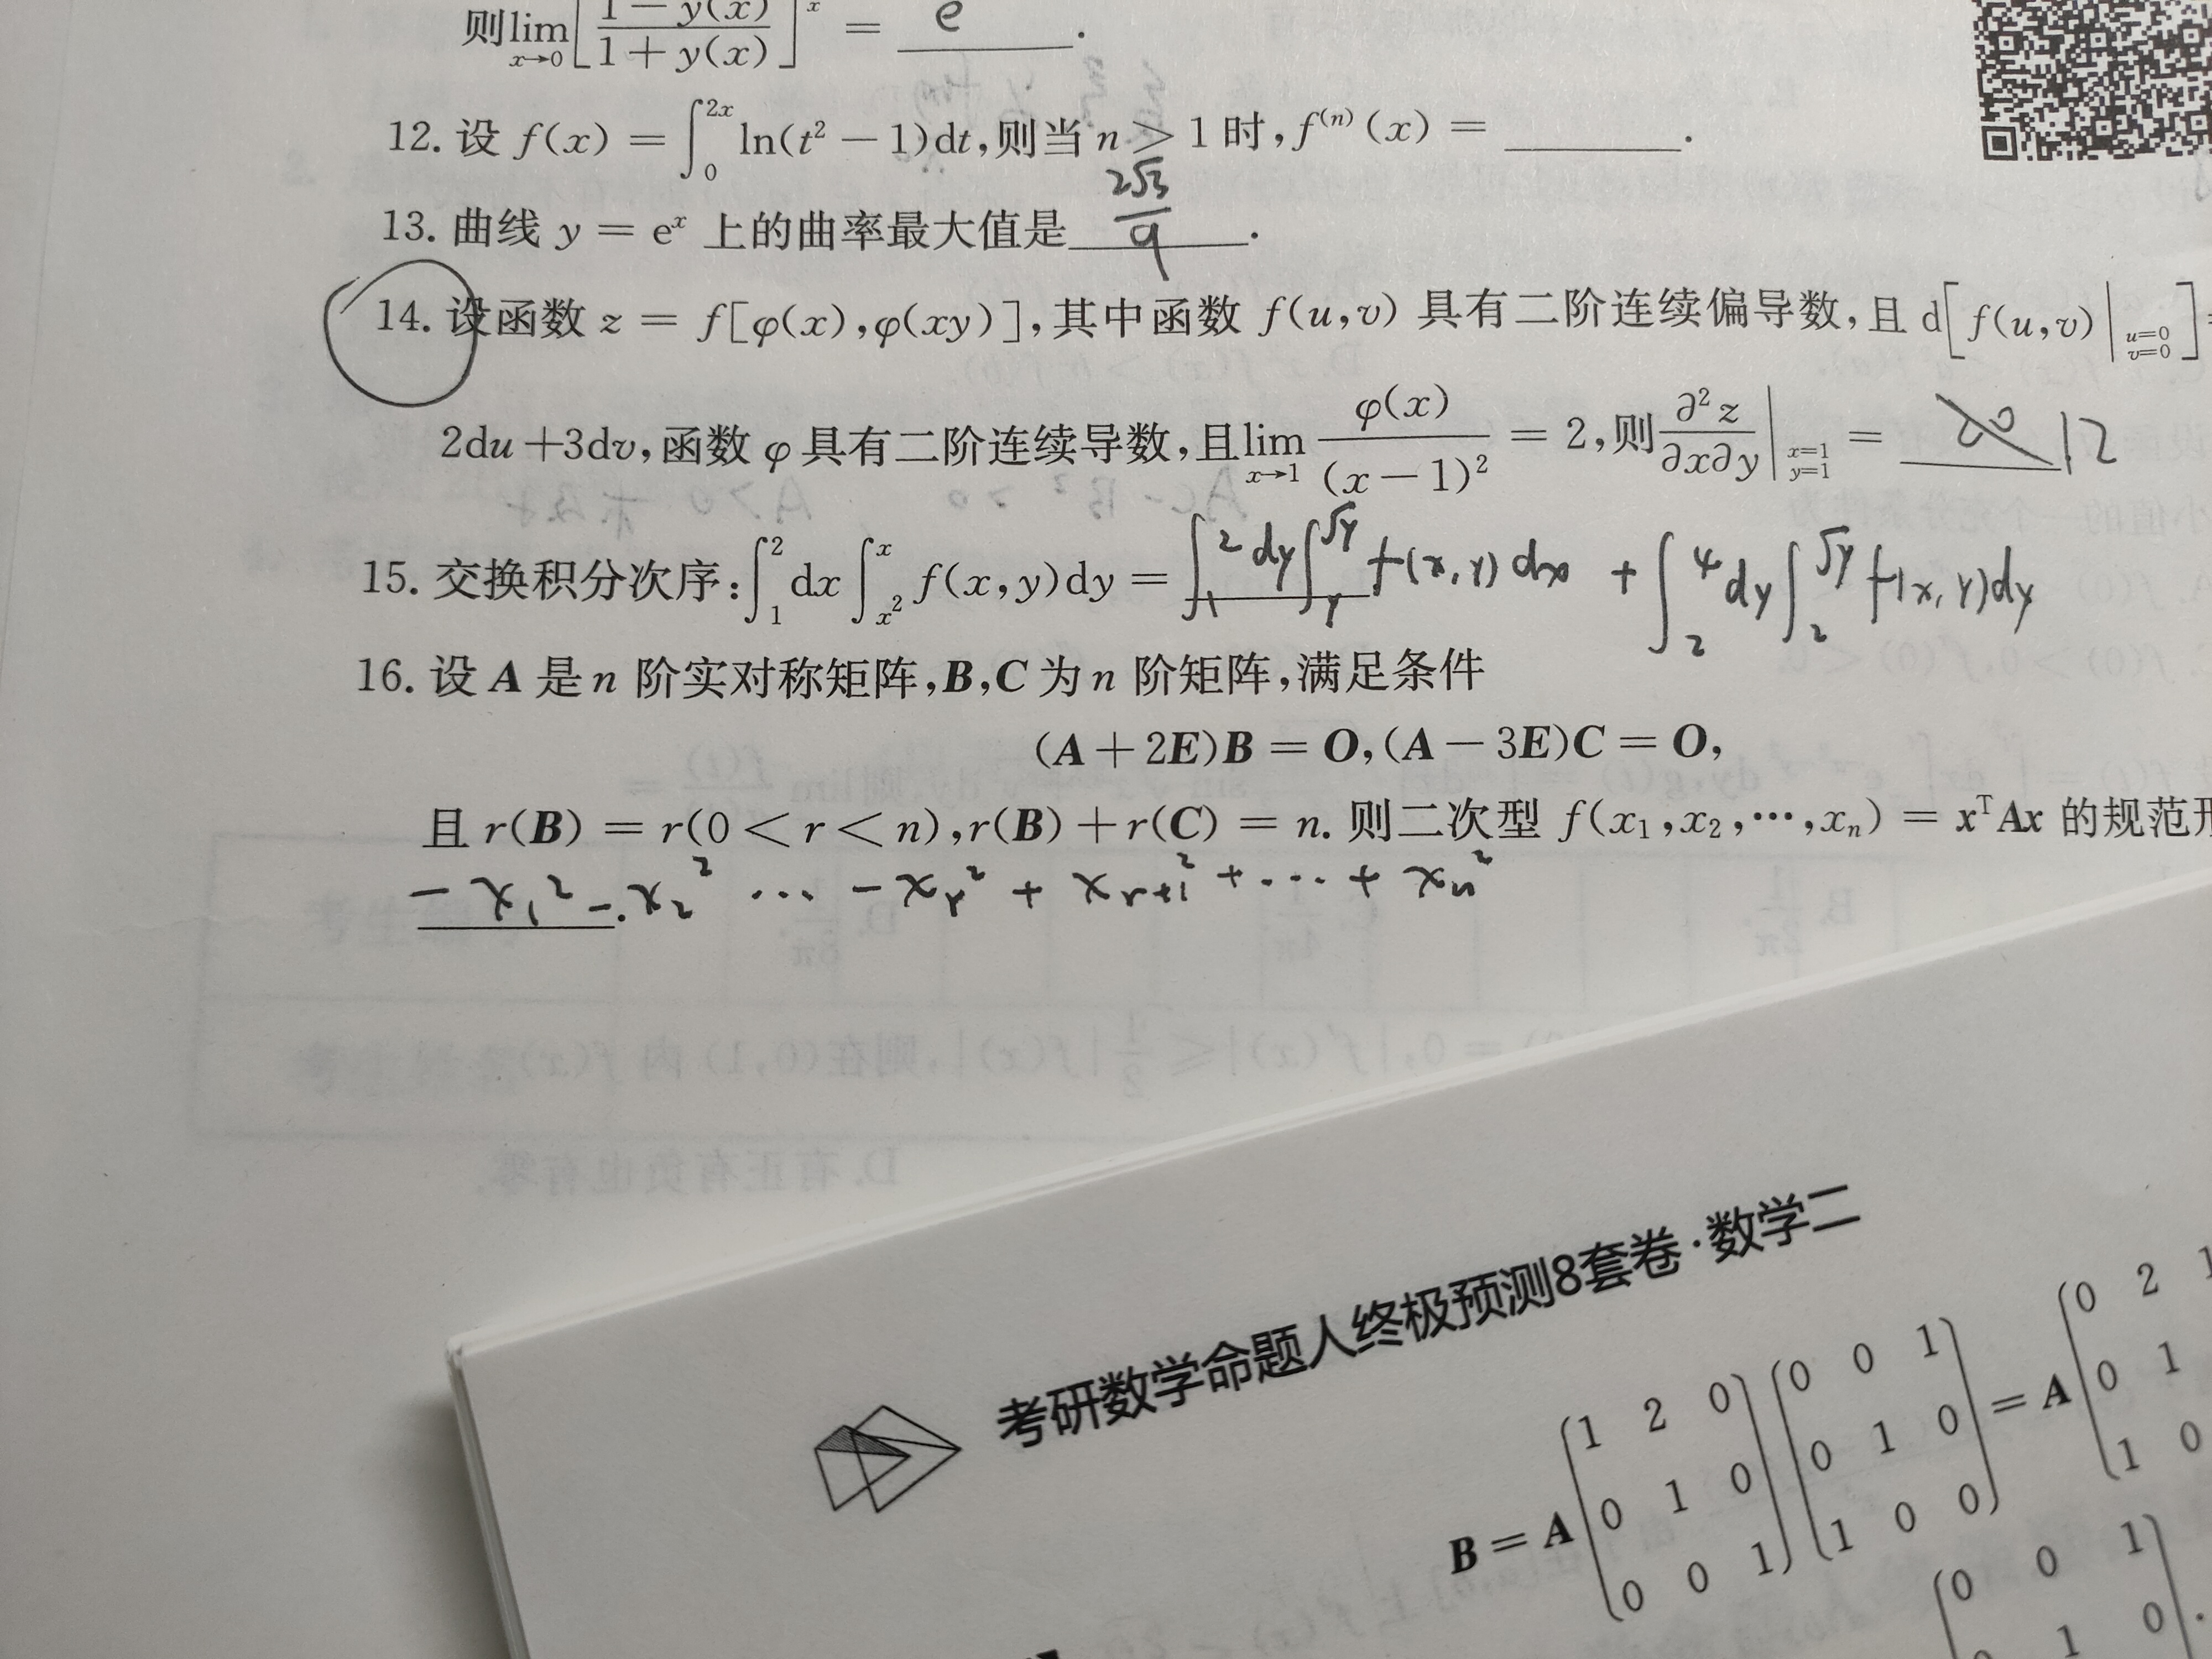 则lim_{x→0}[(1−y(x))/(1+y(x))]^x = e .
12. 设 f(x) = ∫_0^{2x} ln(t² − 1)dt,则当 n > 1 时, f^{(n)}(x) = ______.
13. 曲线 y = e^x 上的曲率最大值是 2√3/9 .
14. 设函数 z = f[φ(x),φ(xy)],其中函数 f(u,v) 具有二阶连续偏导数,且 d[f(u,v)|_{u=0 v=0}] =
2du+3dv,函数 φ 具有二阶连续导数,且lim_{x→1} φ(x)/(x−1)² = 2,则 ∂²z/∂x∂y|_{x=1 y=1} = 12
15. 交换积分次序:∫_1^2 dx ∫_{x²}^x f(x,y)dy = ∫_1^2 dy ∫_y^{√y} f(x,y) dx + ∫_2^4 dy ∫_2^{√y} f(x,y)dy
16. 设 A 是 n 阶实对称矩阵,B,C 为 n 阶矩阵,满足条件
(A + 2E)B = O,(A − 3E)C = O,
且 r(B) = r(0 < r < n),r(B) + r(C) = n. 则二次型 f(x₁,x₂,⋯,xₙ) = x^T Ax 的规范形
− x₁² − x₂² ⋯ − x_r² + x_{r+1}² + ⋯ + x_n² .
考研数学命题人终极预测8套卷·数学二
B = A (1 2 0; 0 1 0; 0 0 1) (0 0 1; 0 1 0; 1 0 0) = A (0 2 1; 0 1; 1 0
(0 0 1
1 0 .